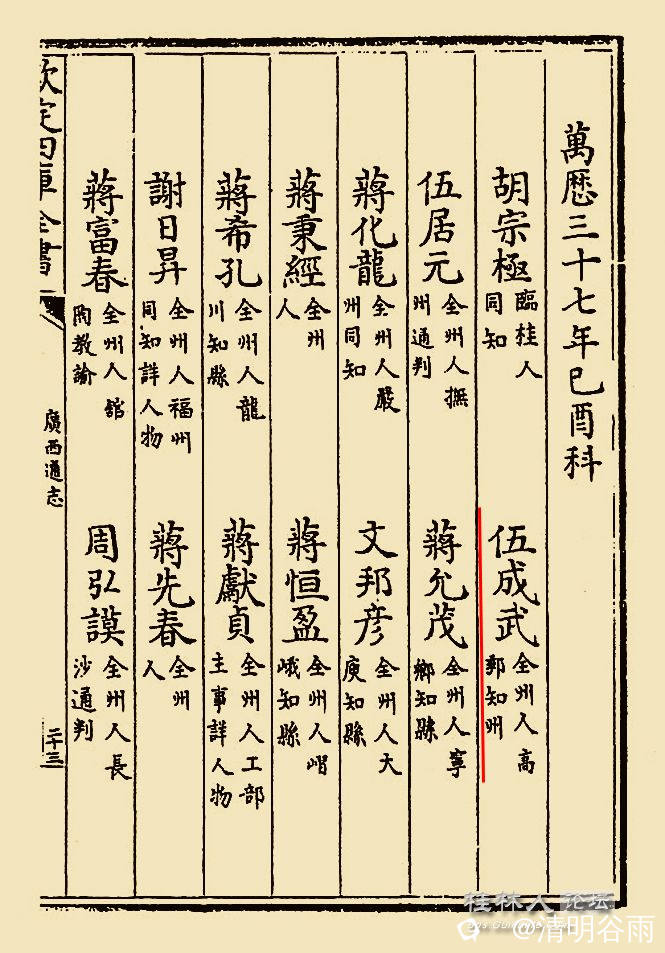 萬歷三十七年巳酉科
胡宗極 臨桂人同知 伍成武 全州人高郵知州
伍居元 全州人撫州通判 蔣允茂 全州人寧鄉知縣
蔣化龍 全州人嚴州同知 文邦彦 全州人大庾知縣
蔣秉經 全州人 蔣恒盈 全州人嶍峨知縣
蔣希孔 全州人龍川知縣 蔣獻貞 全州人工部主事詳人物
謝日昇 全州人福州同知詳人物 蔣先春 全州人
蔣富春 全州人舘陶教諭 周弘謨 全州人長沙通判
欽定四庫全書
廣西通志
二十三
桂林人论坛
@清明谷雨